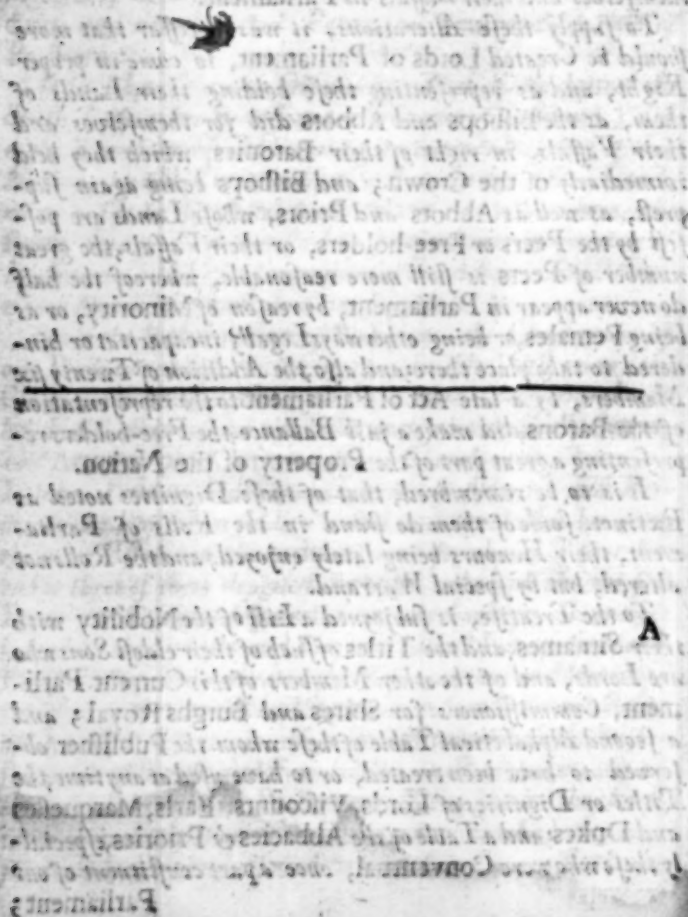 To supply these Alterations, it was that more
should be Created Lords of Parliament, to come in proper
Right, and as representing these holding their Lands of
them, as the Bishops and Abbots did for themselves and
their Vassals, in right of their Baronies, which they held
immediatly of the Crown; and Bishops being again sup-
prest, as well as Abbots and Priors, whose Lands are pos-
sest by the Peers or Free-holders, or their Vassals, the great
number of Peers is still more reasonable, whereof the half
do never appear in Parliament, by reason of Minority, or as
being Females, or being otherways Legally incapacitat or hin-
dered to take place there: and also the Addition of Twenty six
Members, by a late Act of Parliament to the representation
of the Barons, did make a just Ballance the Free-holders re-
presenting a great part of the Property of the Nation.
It is to be remembred, that of these Dignities noted as
Extinct some of them do stand in the Rolls of Parlia-
ment, their Honours being lately enjoyed, and the Rolls not
altered, but by special Warrand.
To the Treatise, is subjoyned a List of the Nobility with
their Surnames, and the Titles of such of their eldest Sons who
are Lords, and of the other Members of this Current Parli-
ament, Commissioners for Shires and Burghs Royal; and
a second Alphabetical Table of these whom the Publisher ob-
served to have been created, or to have used at any time, the
Titles or Dignities of Lords, Viscounts, Earls, Marquesses
and Dukes and a Table of the Abbacies & Priories, special-
ly these who were Conventual, once a part constituent of our
Parliament;
A